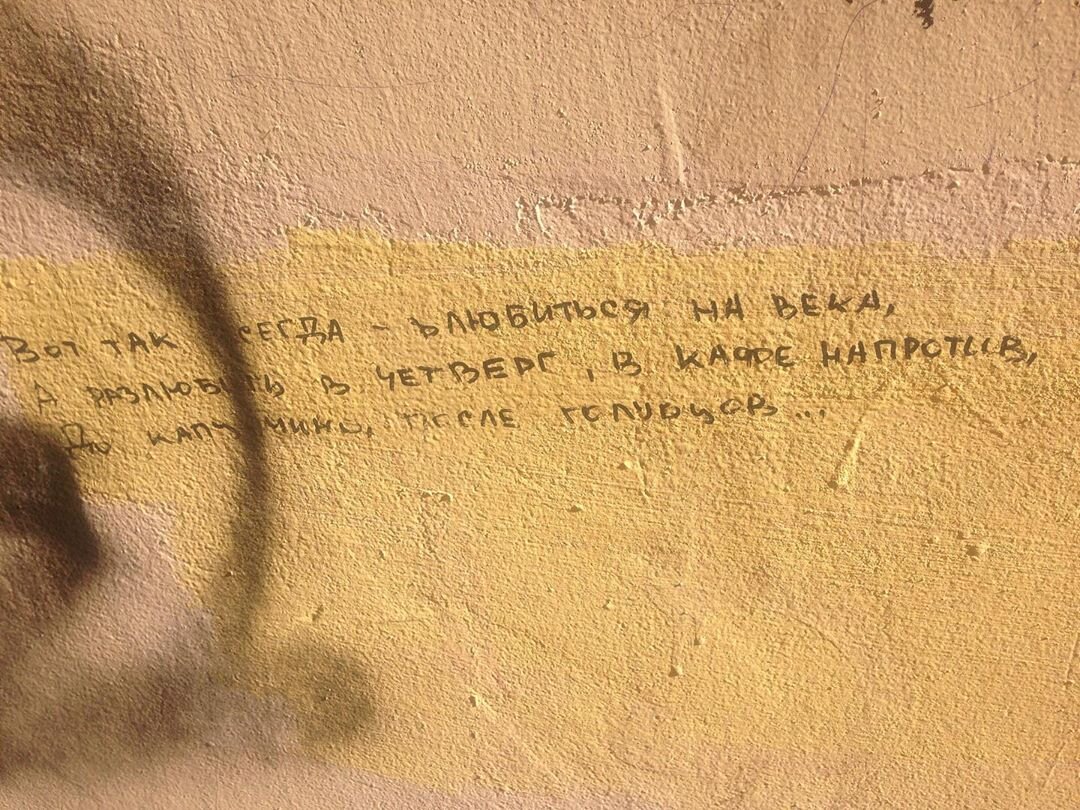 Вот так всегда - влюбиться на века,
А разлюбить в четверг, в кафе напротив,
До капучино, после голубцов...